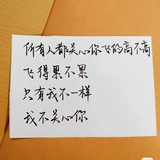 所有人都关心你飞的高不高
飞得累不累
只有我不一样
我不关心你